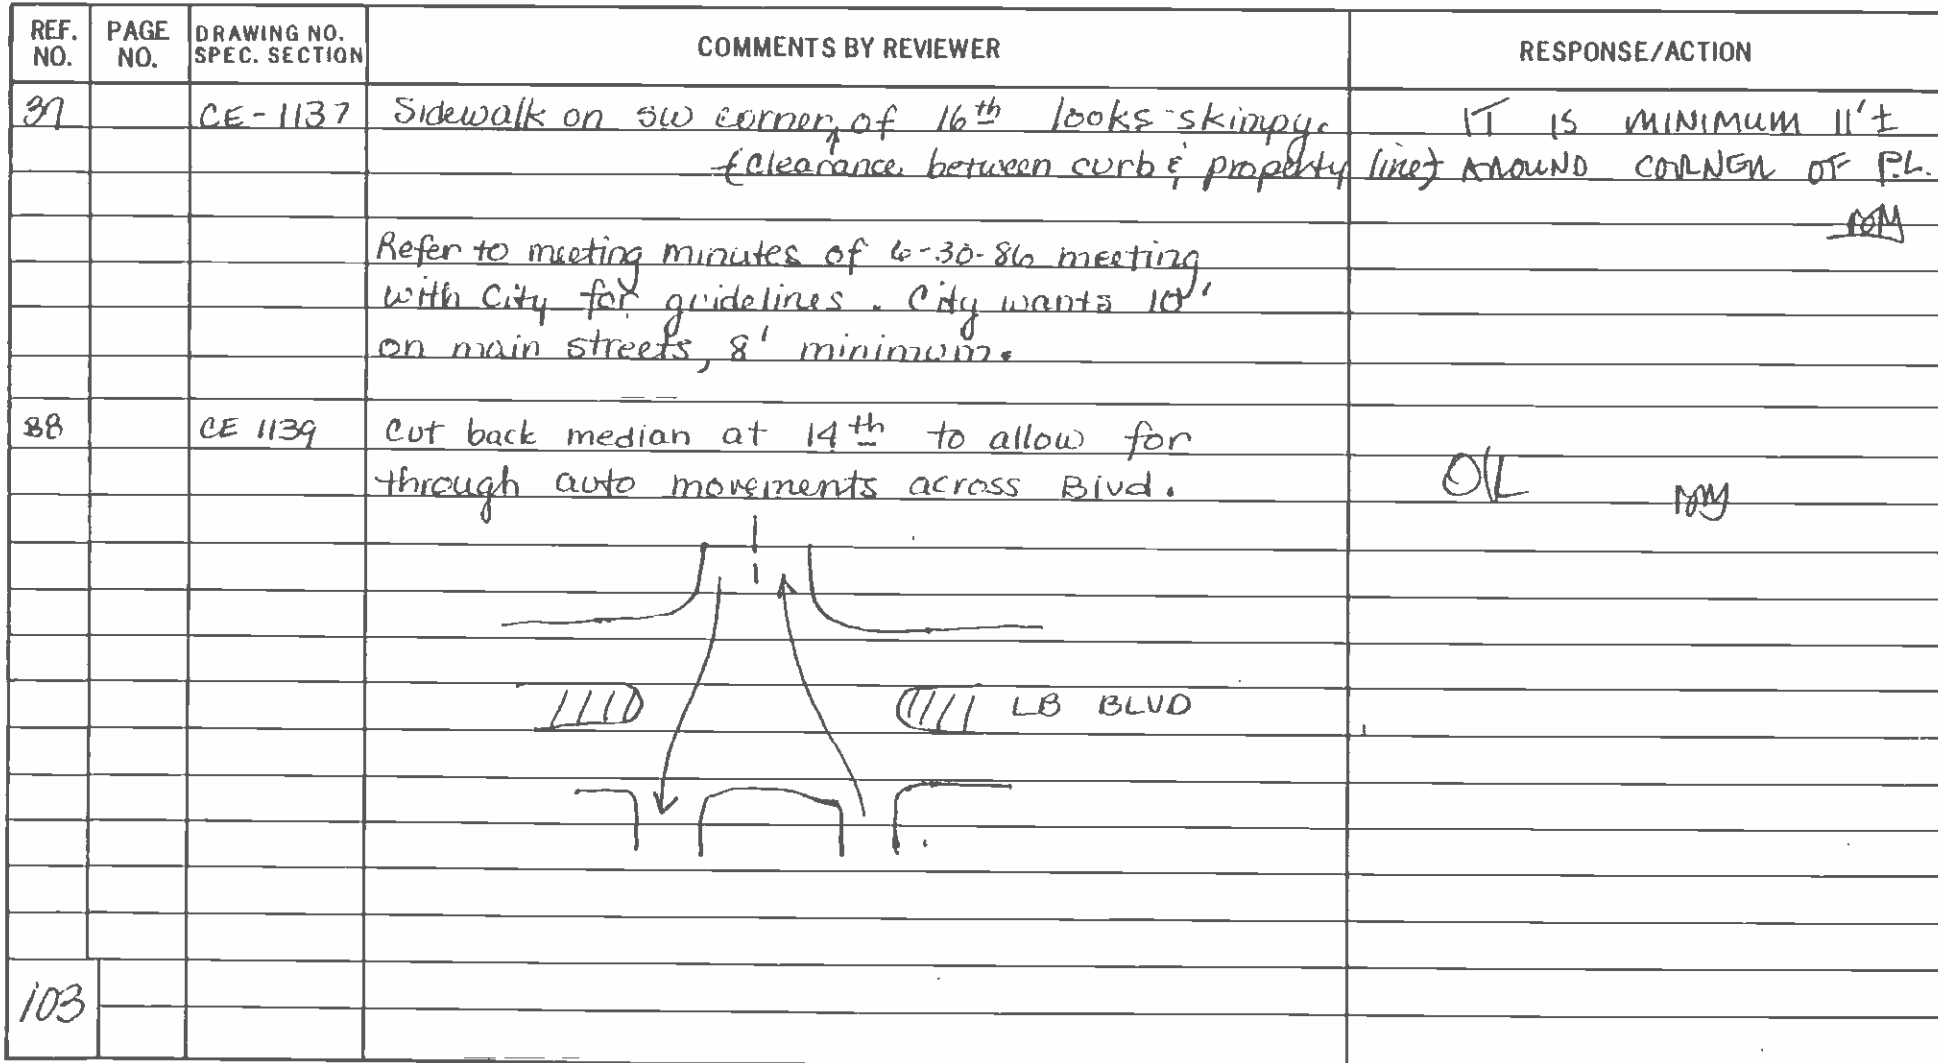 REF. NO. PAGE NO. DRAWING NO. SPEC. SECTION COMMENTS BY REVIEWER RESPONSE/ACTION
37 CE-1137 Sidewalk on SW corner of 16th looks skimpy. IT IS MINIMUM 11'±
(Clearance between curb & property line) AROUND CORNER OF P.L.
Refer to meeting minutes of 6-30-86 meeting
with City for guidelines. City wants 10'
on main streets, 8' minimum.
38 CE 1139 Cut back median at 14th to allow for
through auto movements across Blvd. OK
LB BLVD
103